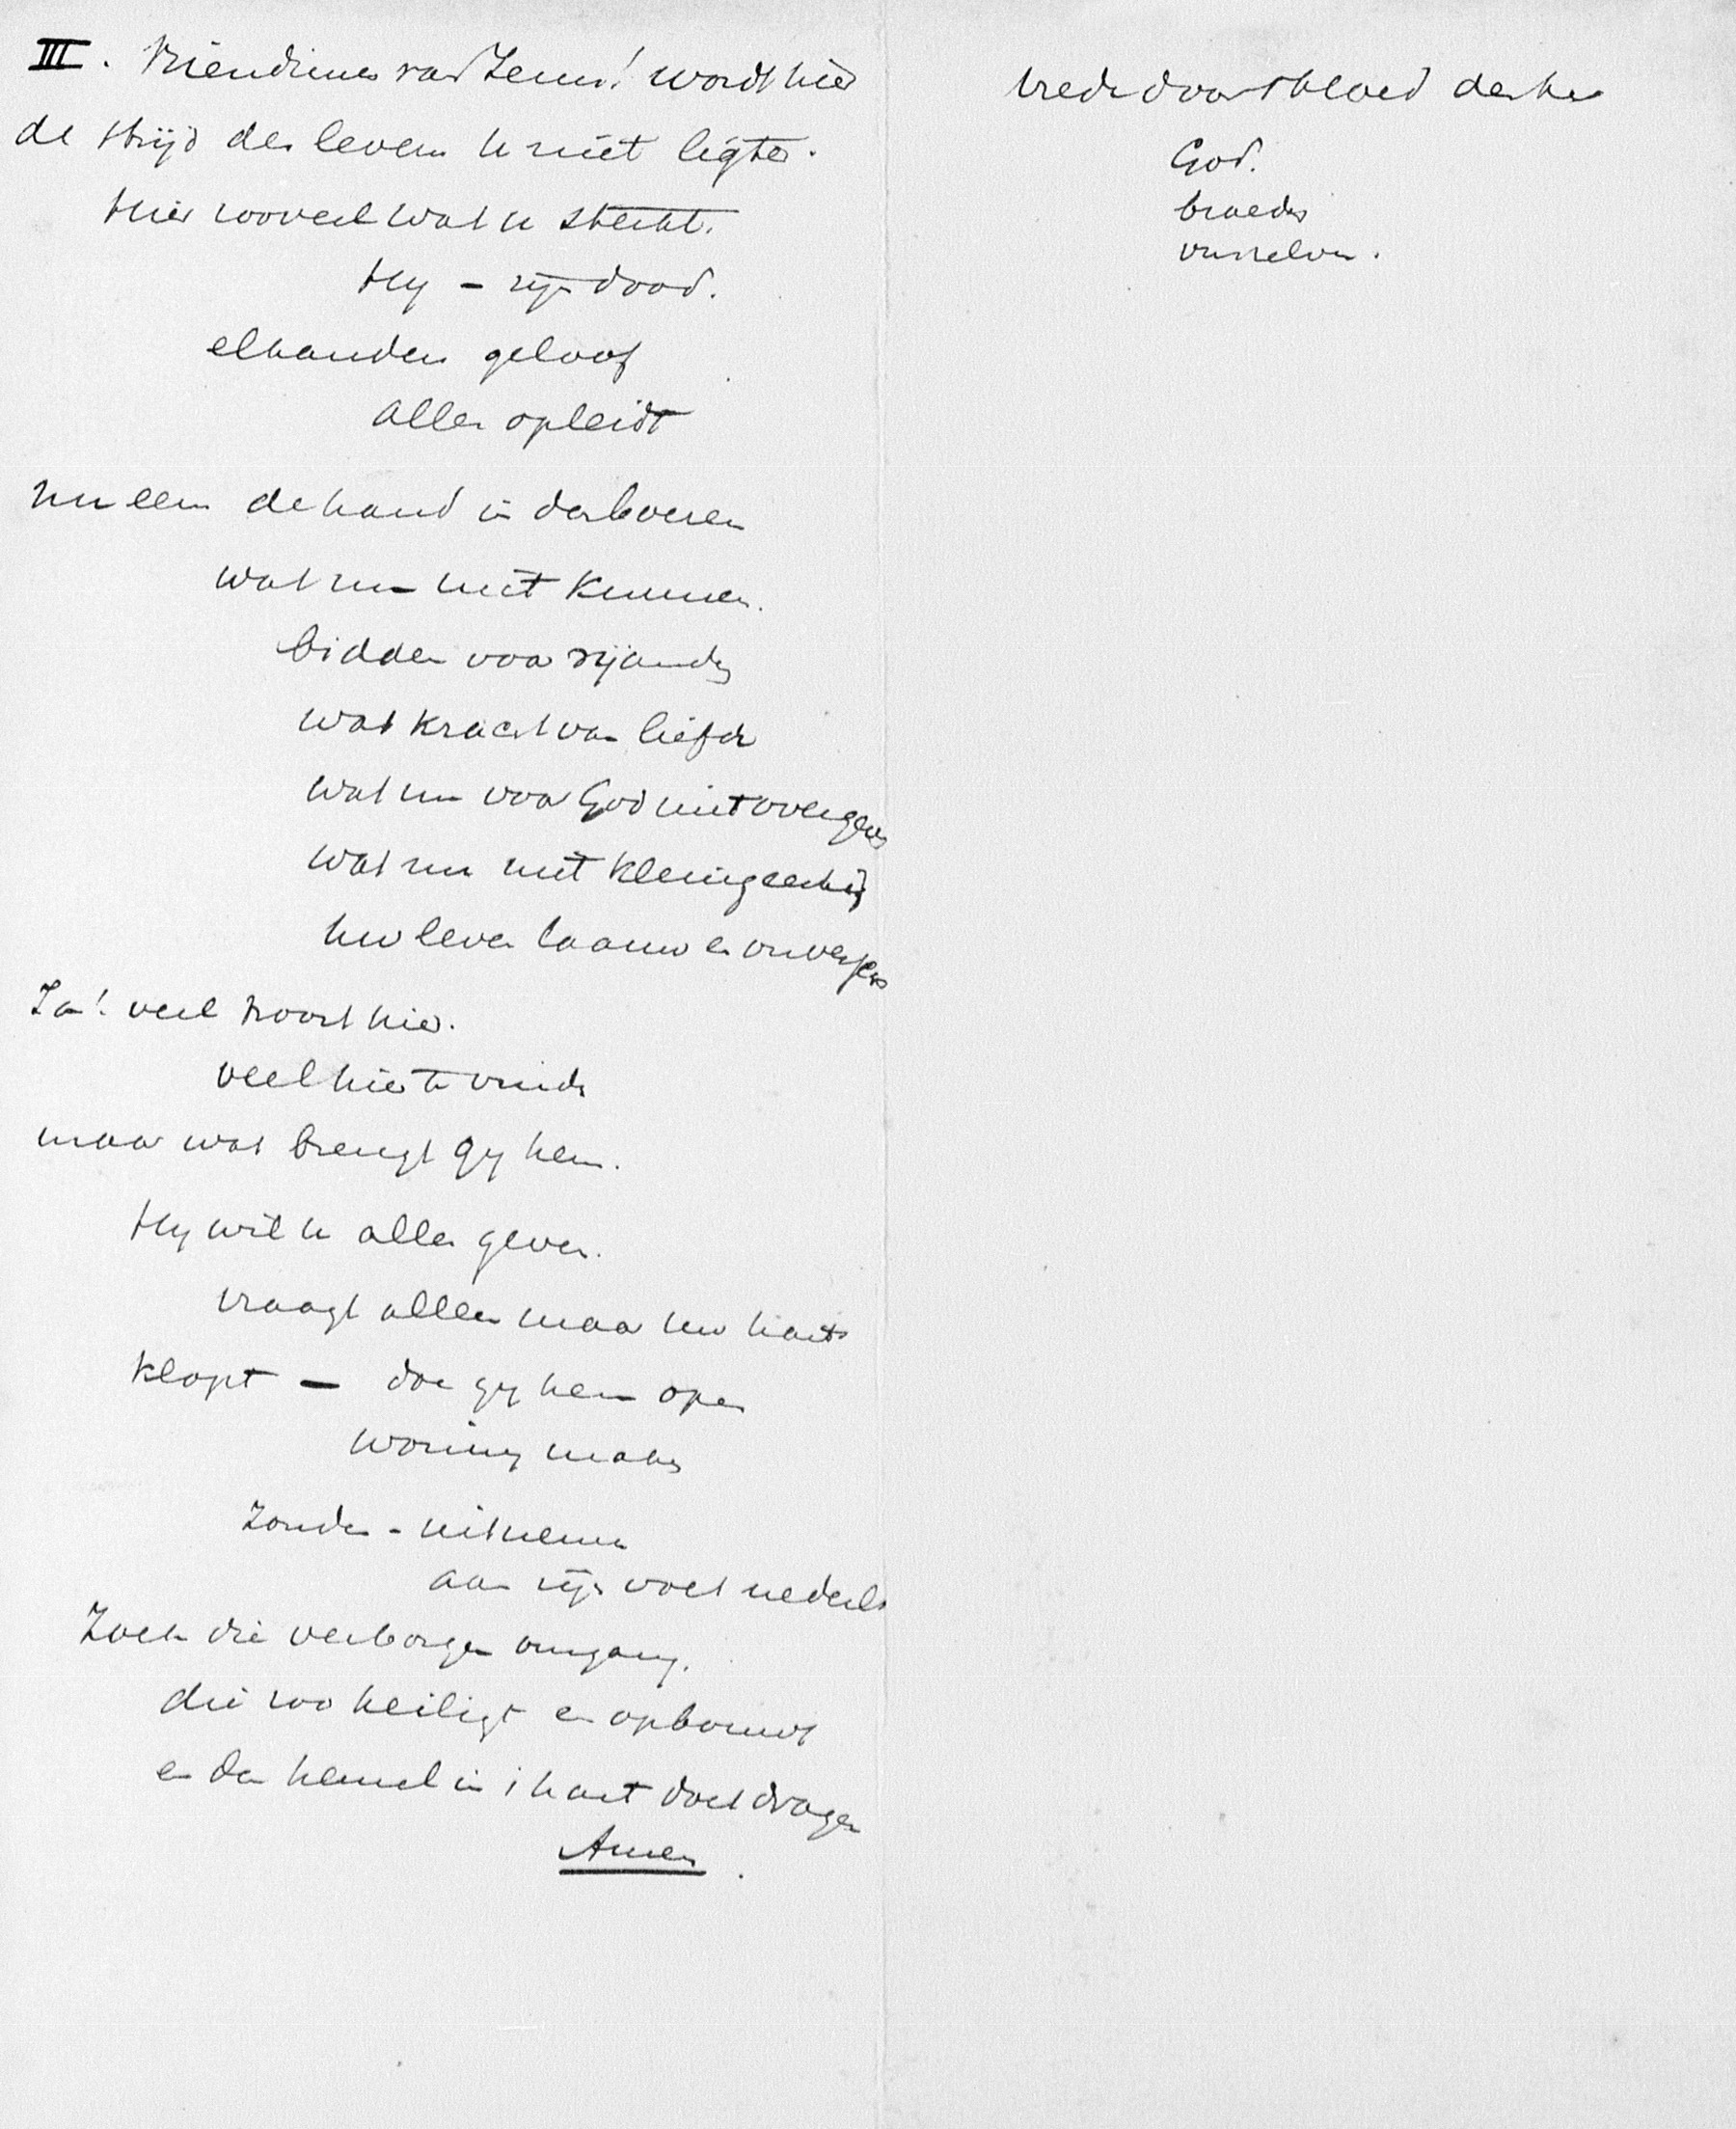 III. Vriendinnen van Jezus! wordt hier
de strijd des levens u niet ligter.
Hier zooveel wat u sterkt.
Hy – zijn dood.
elkanders geloof
alles opleidt
nu eens de hand in
wat nu niet kunnen.
bidden voor vijanden
wat kracht van liefde
wat nu voor God niet overgeven
wat nu niet kleingeestig
uw leven laauw en
Ja! veel troost hier.
veel hier te vinden
maar wat brengt gy hem.
Hy wil u alles geven.
vraagt alleen maar uw hart
klopt – doe gy hem open
woning maken
Zonden – uitnemen
aan zijn voet nederl
Zoek die verborgen omgang.
die zoo heiligt en opbouwt
en den hemel in 't hart doet dragen
Amen.
vrede door 't bloed des kr
God.
broeders
onszelven.